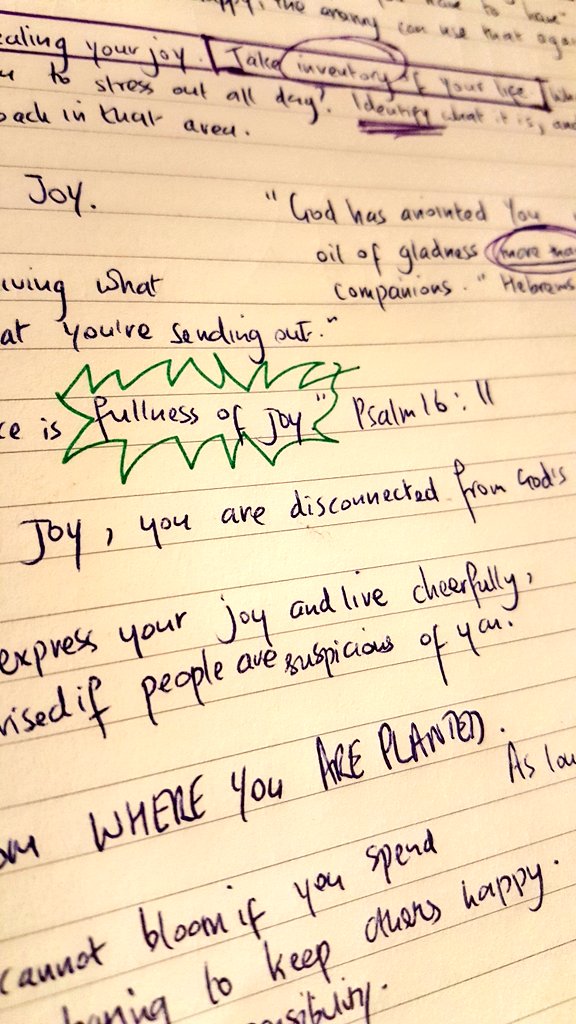 the enemy can use that
your joy. Take inventory of your life
to stress out all day? Identify what it is, an
back in that area.
Joy.
"God has anointed You
oil of gladness more tha
companions." Hebrews
what
at you're sending out."
ce is fullness of joy" Psalm 16:11
Joy, you are disconnected from God's
express your joy and live cheerfully,
rised if people are suspicious of you.
om WHERE YOU ARE PLANTED.
As lon
cannot bloom if you spend
to keep others happy.